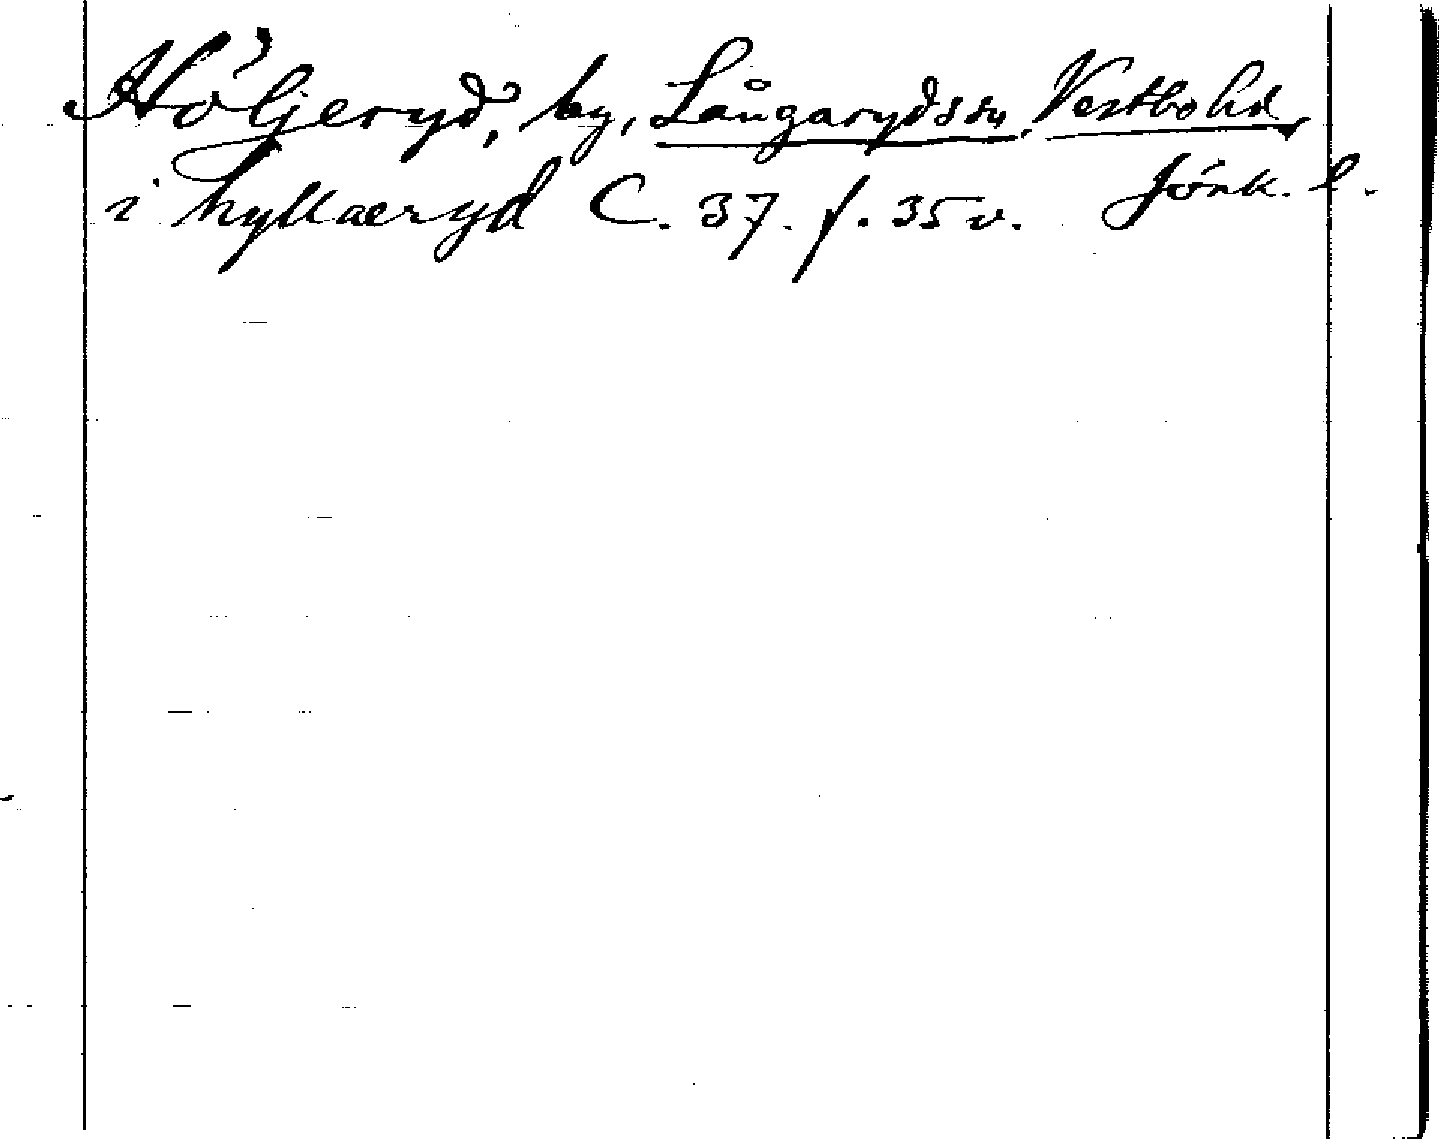 Höljeryd, by, Långaryds sn. Vestbo hd
i hyltaeryd C. 37. f. 35 v. Jönk. l.